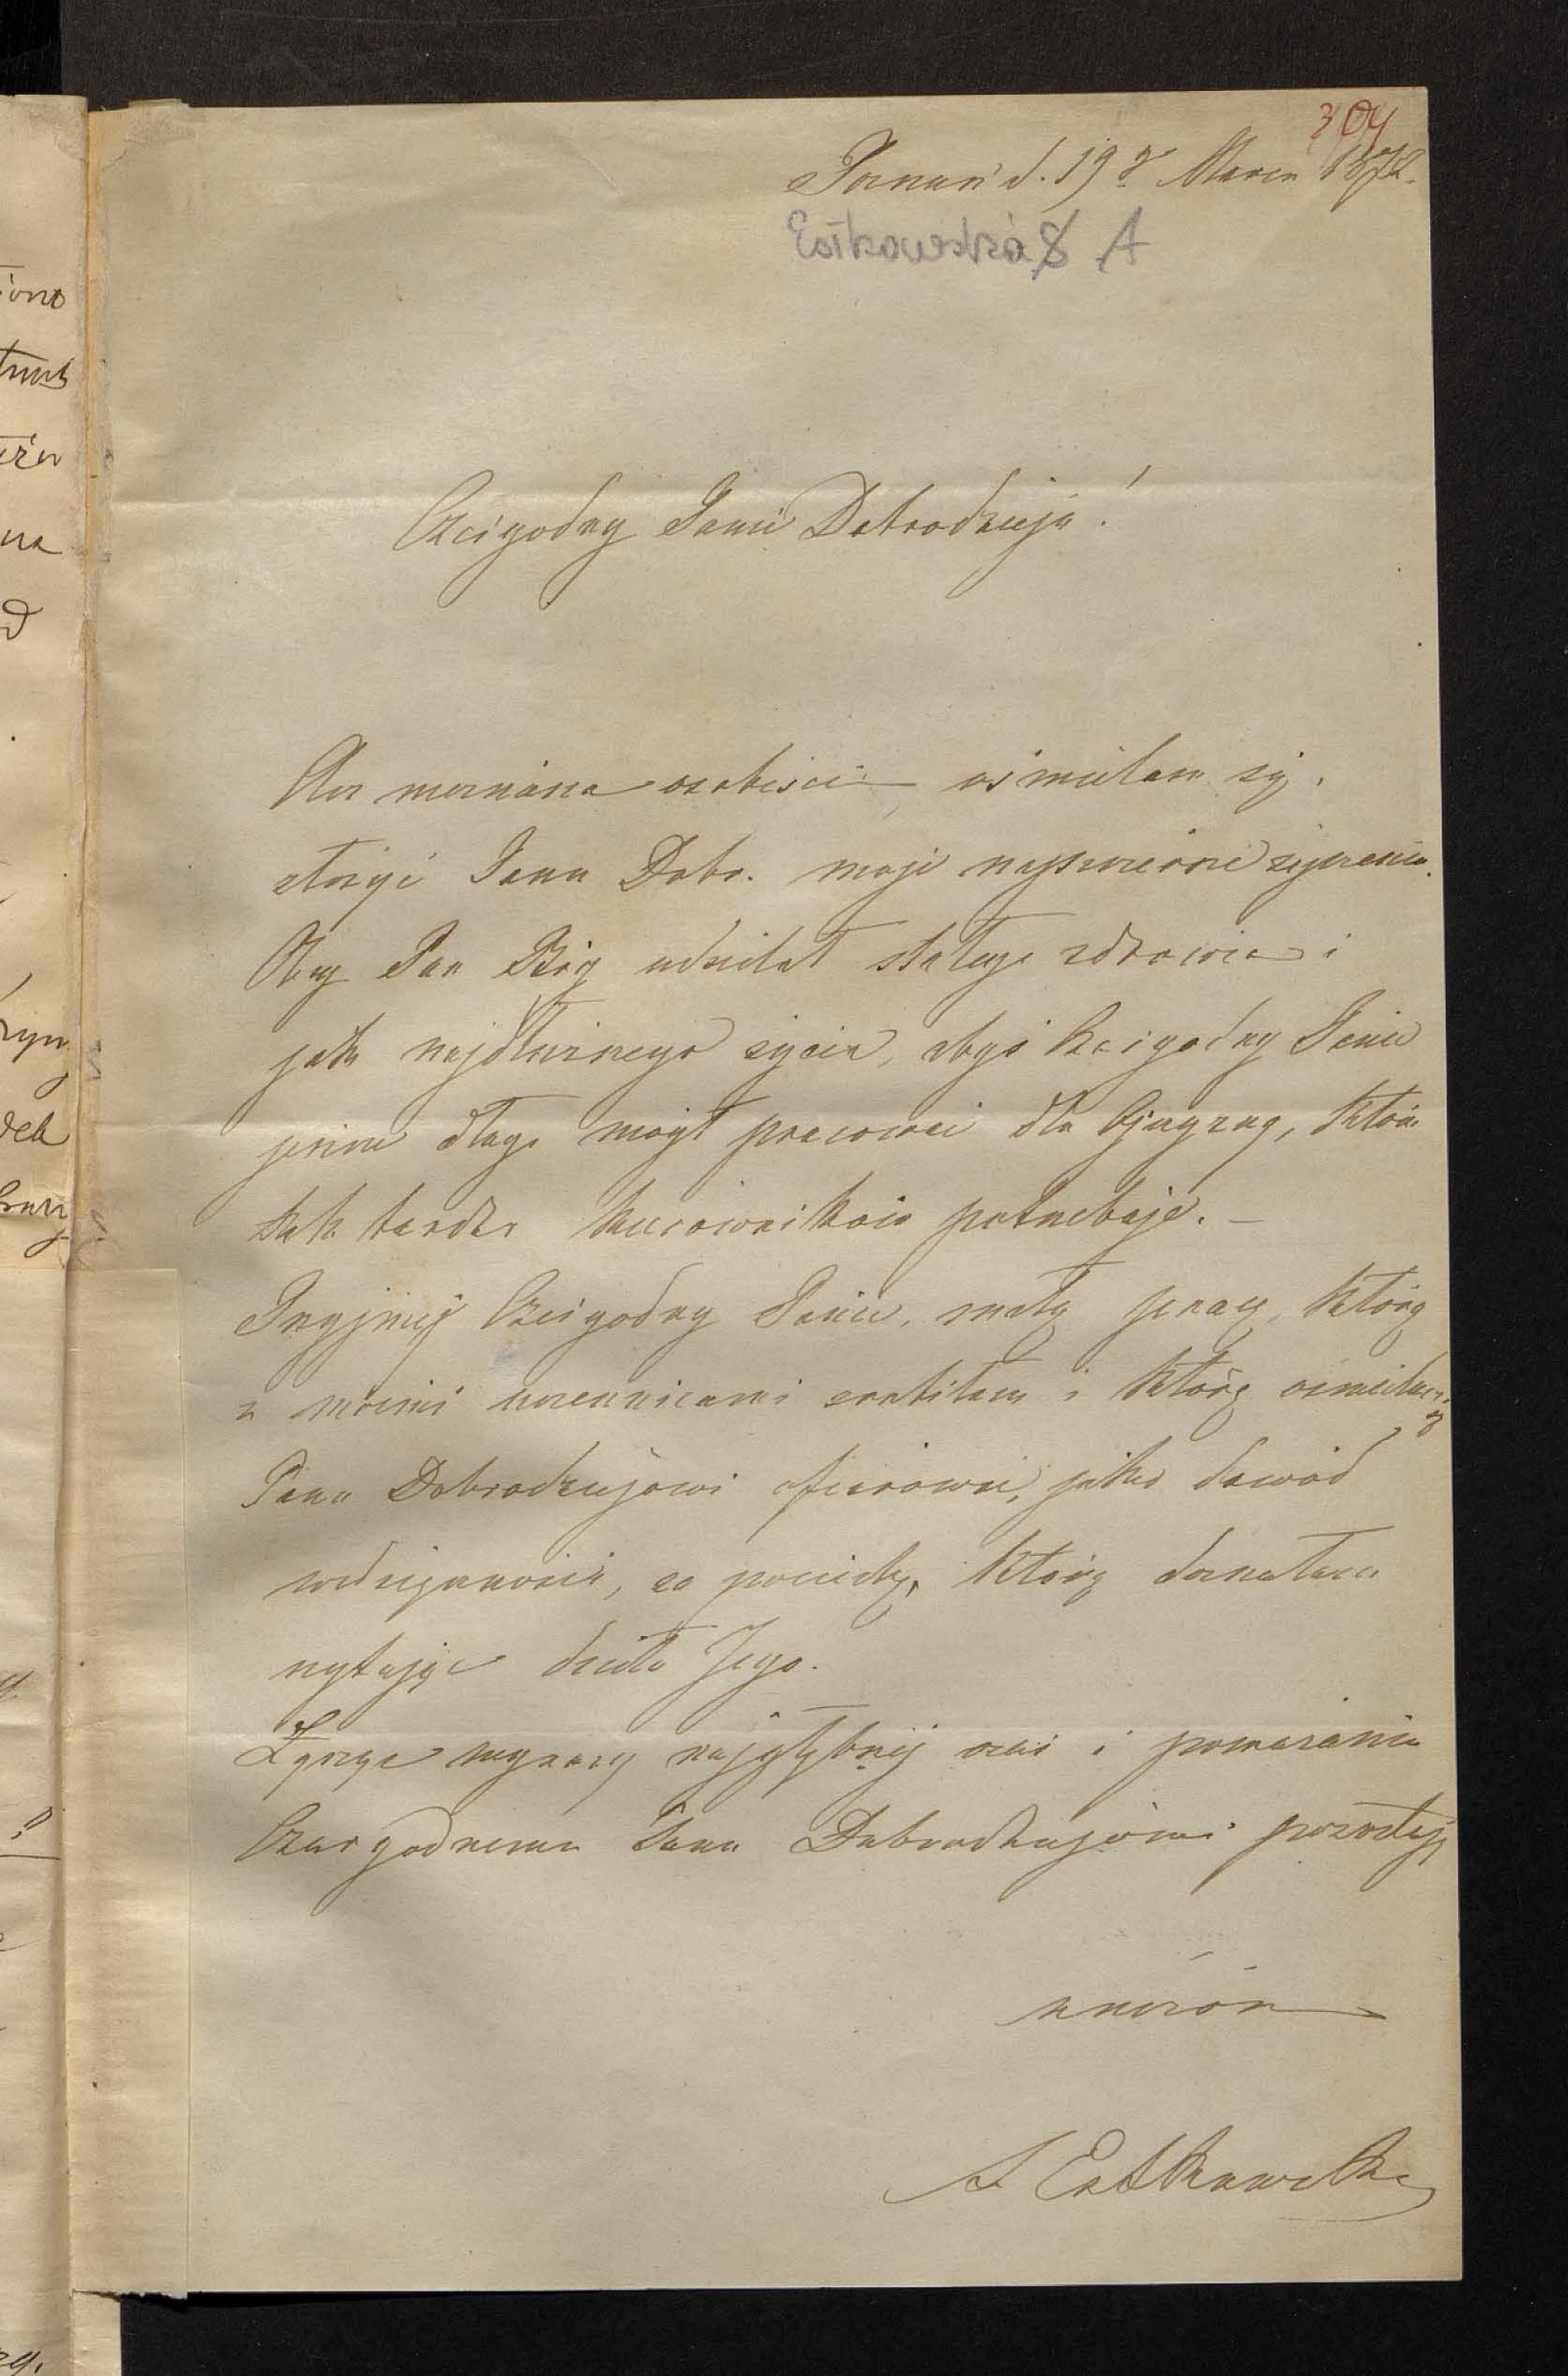 304
Poznań d. 19go Marca 1872.
Estkowska A
Czcigodny Panie Dobrodzieju!
Nieznana osobiście, ośmielam się
złożyć Panu Dobr. moje najszczersze życzenia.
Oby Pan Bóg udzielał stałego zdrowia i
jak najdłuższego życia, abyś Czcigodny Panie
jeszcze długo mógł pracować dla Ojczyzny, która
tak bardzo kierowników potrzebuje. —
Przyjmij Czcigodny Panie, małą pracę, którą
z moimi uczennicami zrobiłam i którą ośmielam się
Panu Dobrodziejowi ofiarować, jako dowód
wdzięczności, za pociechę, którą doznałam
czytając dzieła Jego.
Łącząc wyrazy najgłębszej czci i poważania
Czcigodnemu Panu Dobrodziejowi pozostaję
A Estkowska